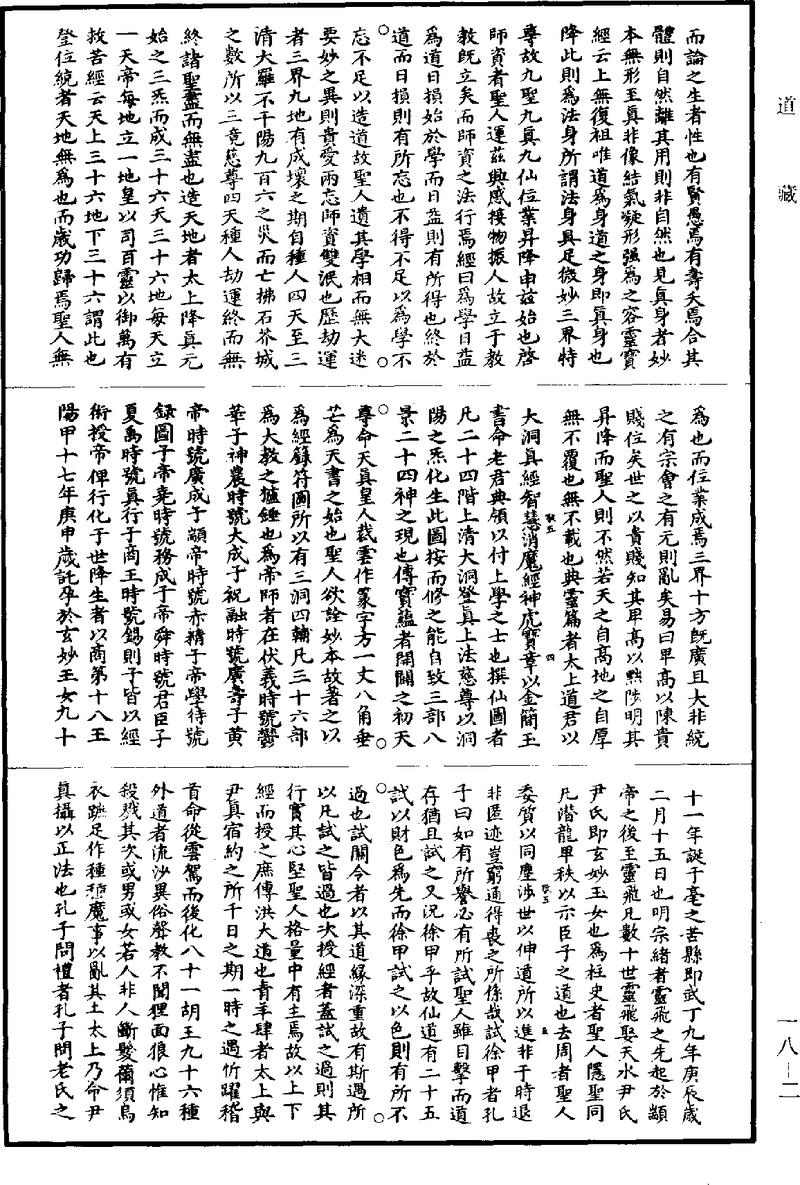 道藏
而論之生者性也有賢愚焉有壽夭焉合其
體則自然離其用則非自然也見真身者妙
本無形至真非像結氣凝形強為之容靈寶
經云上無復祖唯道為身道之身即真身也
降此則為法身所謂法身具足微妙三界特
尊故九聖九真九仙位業昇降由茲始也啓
師資者聖人運茲興感接物振人故立于教
教既立矣而師資之法行焉經曰為學日益
為道日損始於學而日益則有所得也終於
道而日損則有所忘也不得不足以為學不
忘不足以造道故聖人遺其學相而無大迷
要妙之異則貴愛兩忘師資雙泯也歷劫運
者三界九地有成壞之期自種人四天至三
清大羅不干陽九百六之災而亡拂石芥城
之數所以三竟慈尊四天種人劫運終而無
終諸聖盡而無盡也造天地者太上降真元
始之三炁而成三十六天三十六地每天立
一天帝每地立一地皇以司百靈以御萬有
故苦經云天上三十六地下三十六謂此也
登位統者天地無為也而歲功歸焉聖人無
為也而位業成焉三界十方既廣且大非統
之有宗會之有元則亂矣易曰卑高以陳貴
賤位矣世之以貴賤知其卑高以黜陟明其
昇降而聖人則不然若天之自高地之自厚
無不覆也無不載也典靈篇者太上道君以
大洞真經智慧消魔經神虎寶章以金簡玉
書命老君典領以付上學之士也撰仙圖者
凡二十四階上清大洞登真上法慈尊以洞
陽之炁化生此圖按而修之能自致三部八
景二十四神之現也傳寶蘊者開闢之初天
尊命天真皇人裁雲作篆字方一丈八角垂
芒為天書之始也聖人欲詮妙本故著之以
為經籙符圖所以有三洞四輔凡三十六部
為大教之爐錘也為帝師者在伏羲時號鬱
華子神農時號大成子祝融時號廣壽子黃
帝時號廣成子顓帝時號赤精子帝嚳時號
錄圖子帝堯時號務成子帝舜時號君臣子
夏禹時號真行子商王時號錫則子皆以經
術授帝俾行化于世降生者以商第十八王
陽甲十七年庚申歲託孕於玄妙玉女九十
十一年誕于亳之苦縣即武丁九年庚辰歲
二月十五日也明宗緒者靈飛之先起於顓
帝之後至靈飛凡數十世靈飛娶天水尹氏
尹氏即玄妙玉女也為柱史者聖人隱聖同
凡潛龍卑秩以示臣子之道也去周者聖人
委質以同塵涉世以伸道所以進非干時退
非匿迹豈窮通得喪之所係哉試徐甲者孔
子曰如有所譽必有所試聖人雖目擊而道
存猶且試之又況徐甲乎故仙道有二十五
試以財色為先而徐甲試之以色則有所不
過也試關令者以其道緣深重故有斯遇所
以凡試之皆過也次授經者蓋試之過則其
行實其心堅聖人格量中有主焉故以上下
經而授之庶傳洪大道也青羊肆者太上與
尹真宿約之所千日之期一時之遇忻躍稽
首命從雲駕而後化八十一胡王九十六種
外道者流沙異俗聲教不聞狸面狼心惟知
殺戮其次或男或女若人非人斷髮薾須烏
衣跣足作種種魔事以亂其土太上乃命尹
真攝以正法也孔子問禮者孔子問老氏之
一八-二